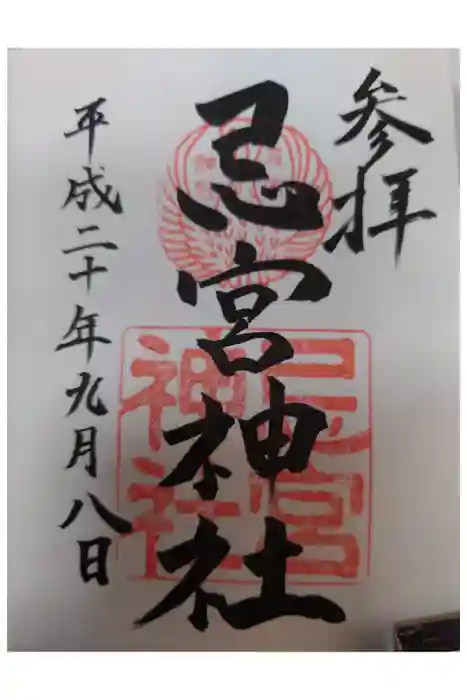 参拝
忌宮神社
忌宮
神社
平成二十年九月八日